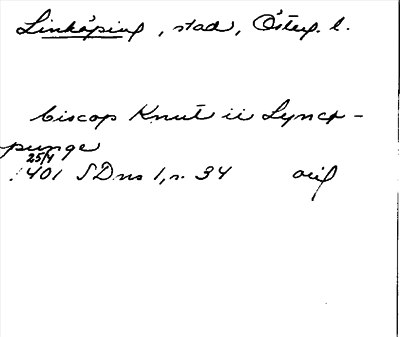 Linköping, stad, Österg. l.
biscop Knut ii Lynco-
punge
25/4
1401 SDns 1, n. 34 orig